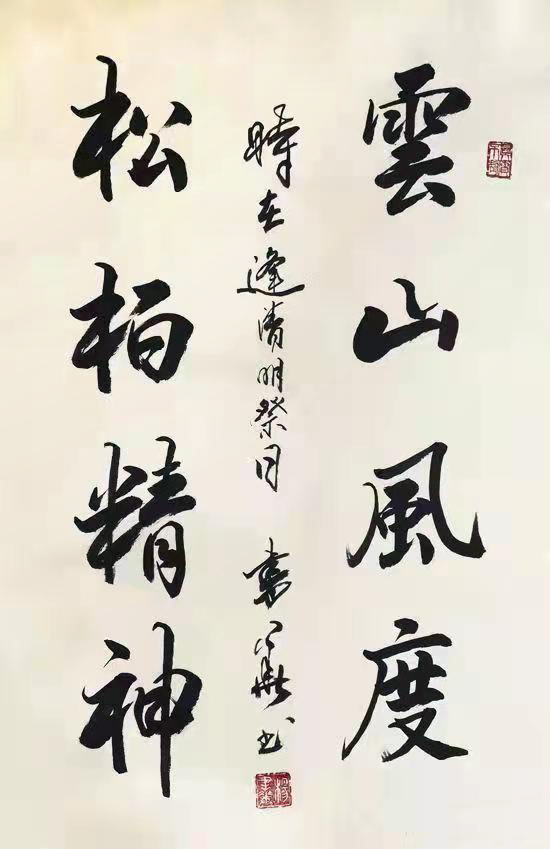 雲山風度
松柏精神
時在逢清明祭月 书